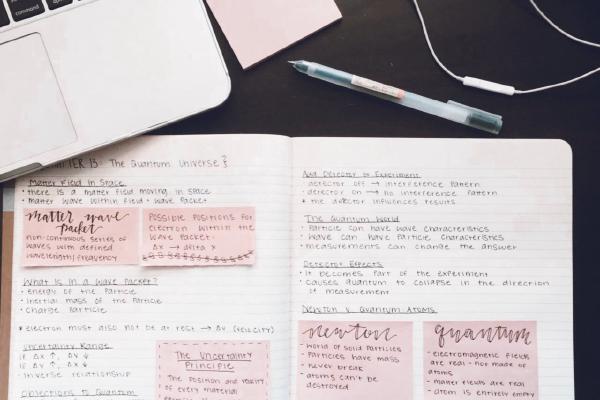 command
TER 13: The Quantum Universe
Matter Field in Space
• there is a matter field moving in space
• matter wave within field - wave packet
matter wave
packet
non-continuous series of
waves with defined
wavelength/frequency
Possible positions for
electron within the
wave packet.
Δx → delta x
What Is in a Wave Packet?
• energy of the particle
• inertial mass of the particle
• charge particle
* electron must also not be at rest → Δv (velocity)
Uncertainty Range
if Δx ↑, Δv ↓
if Δx ↓, Δv ↑
• inverse relationship
Objections to Quantum
The Uncertainty
Principle
The position and velocity
of every material
Add Detector to Experiment
• detector off → interference pattern
• detector on → no interference pattern
* the detector influences results
The Quantum World
• Particle can have wave characteristics
• wave can have particle characteristics
• measurements can change the answer
Detector Effects
• It becomes part of the experiment
• causes quantum to collapse in the direction
of measurement
Newton & Quantum Atoms
newton
- world of solid particles
- Particles have mass
- never break
- atoms can't be
destroyed
quantum
- electromagnetic fields
are real - not made of
atoms
- matter fields are real
- atom is entirely empty